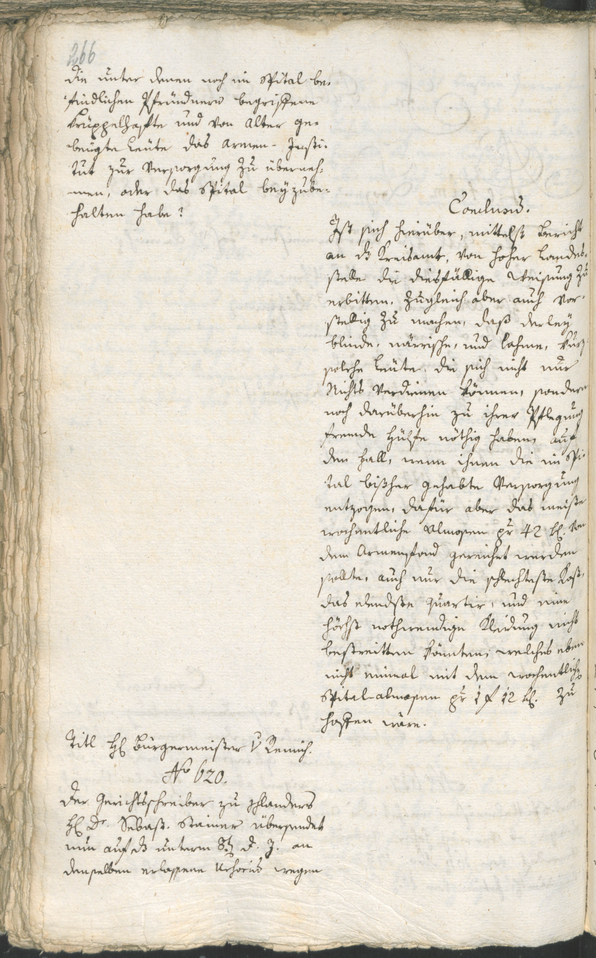 266
die unter denen noch im Spital be-
findlichen Pfründnern begriffene
krüppelhafte und von Alter ge-
beugte Leute das Armen-Insti-
tut zur Versorgung zu überneh-
men, oder das Spital beyzube-
halten habe?
Conclusum.
Ist sich hierüber, mittelst Bericht
an das Kreisamt, von hoher Landes-
stelle die diesfällige Weisung zu
erbitten, zugleich aber auch vor-
stellig zu machen, daß derley
blinde, närrische, und lahme, kurz
solche Leute die sich nicht nur
Nichts verdienen können, sondern
noch darüberhin zu ihrer Pflegung
fremde Hülfe nöthig haben, auf
den Fall, wenn ihnen die im Spi-
tal bißher gehabte Versorgung
entzogen, dafür aber das meiste
wochentliche Almosen pr 42 kr. von
dem Armenfond gereichet werden
sollte, auch nur die schlechteste Kost,
das elendste Quartir, und eine
höchst nothwendige Kleidung nicht
bestreitten könnten, welches eben
nicht einmal mit dem wochentlich
Spital-almosen pr 1 f 12 kr. zu
hoffen wäre.
Titl H Bürgermeister v Remich.
No 620.
Der Gerichtsschreiber zu Schlanders
H Dr Sebast. Stainer übersendet
nun auf das unterm d. J. an
denselben erlassene wegen